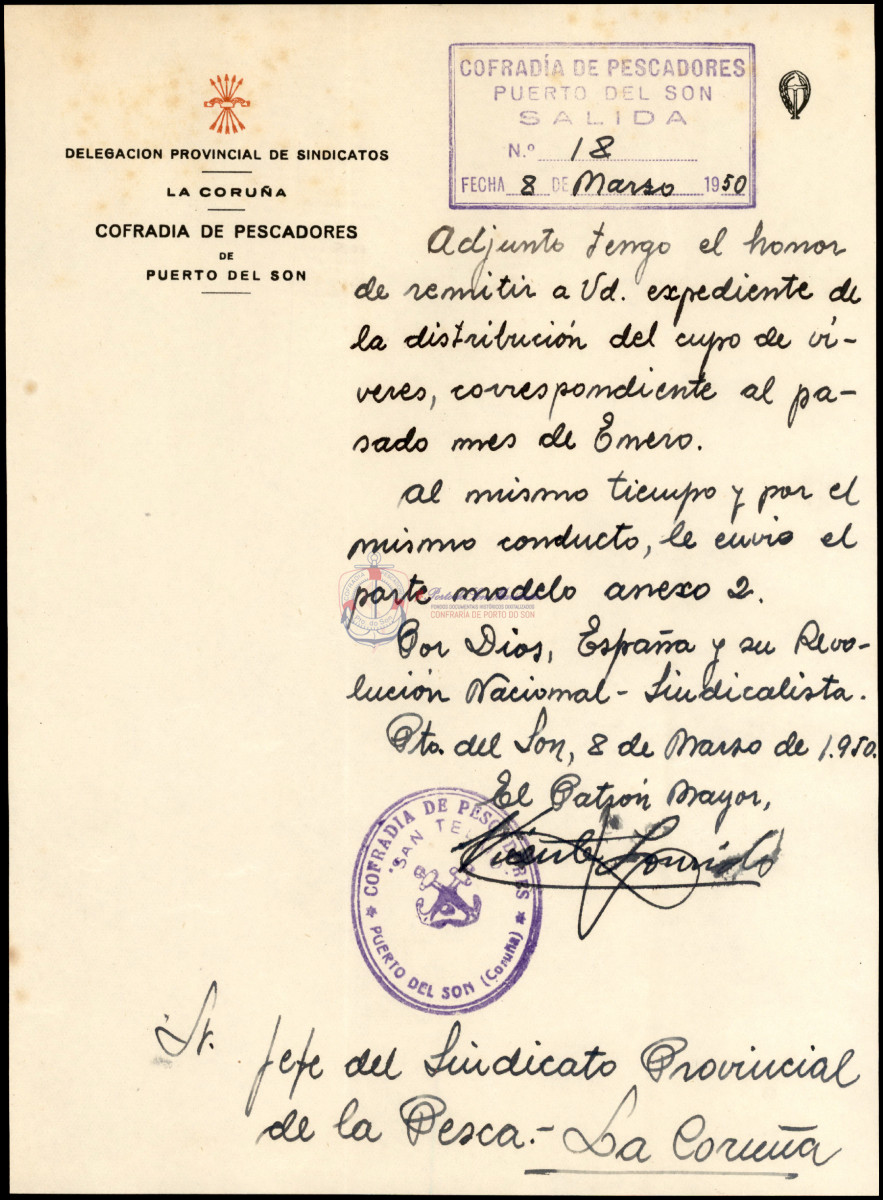 DELEGACION PROVINCIAL DE SINDICATOS
LA CORUÑA
COFRADIA DE PESCADORES
DE
PUERTO DEL SON
COFRADÍA DE PESCADORES
PUERTO DEL SON
SALIDA
N.º 18
FECHA 8 DE Marzo 1950
Adjunto tengo el honor
de remitir a Vd. expediente de
la distribución del cupo de ví-
veres, correspondiente al pa-
sado mes de Enero.
Al mismo tiempo y por el
mismo conducto, le envio el
parte modelo anexo 2.
Por Dios, España y su Revo-
lución Nacional-Sindicalista.
Pto. del Son, 8 de Marzo de 1.950.
El Patrón Mayor,
Vicente
COFRADIA DE PESCADORES
"SAN TELMO"
PUERTO DEL SON (Coruña)
FONDOS DOCUMENTAIS HISTÓRICOS DIXITALIZADOS
CONFRARÍA DE PORTO DO SON
Sr. Jefe del Sindicato Provincial
de la Pesca.- La Coruña